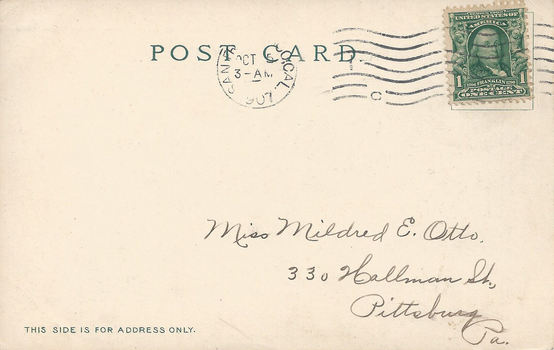 POST CARD.
OCT 5
3-AM
1907
CAL.
C
UNITED STATES OF
AMERICA
1 FRANKLIN 1
POSTAGE
ONE CENT
Miss Mildred E. Otto.
330 Hallman St.,
Pittsburg
Pa.
THIS SIDE IS FOR ADDRESS ONLY.